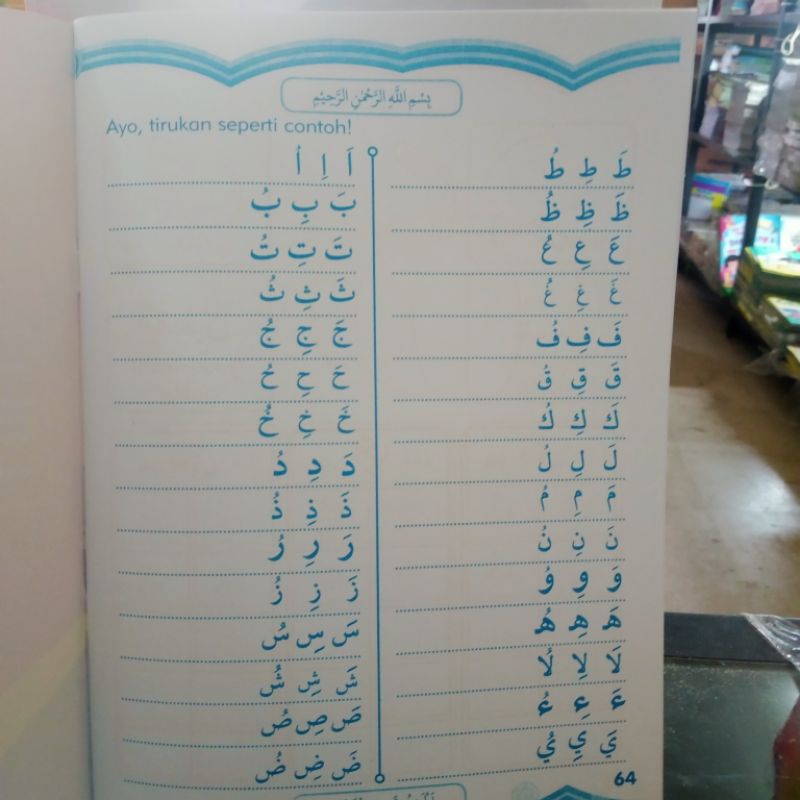 بِسْمِ اللّٰهِ الرَّحْمٰنِ الرَّحِيْمِ
Ayo, tirukan seperti contoh!
اَ اِ اُ
بَ بِ بُ
تَ تِ تُ
ثَ ثِ ثُ
جَ جِ جُ
حَ حِ حُ
خَ خِ خُ
دَ دِ دُ
ذَ ذِ ذُ
رَ رِ رُ
زَ زِ زُ
سَ سِ سُ
شَ شِ شُ
صَ صِ صُ
ضَ ضِ ضُ
طَ طِ طُ
ظَ ظِ ظُ
عَ عِ عُ
غَ غِ غُ
فَ فِ فُ
قَ قِ قُ
كَ كِ كُ
لَ لِ لُ
مَ مِ مُ
نَ نِ نُ
وَ وِ وُ
هَ هِ هُ
لَا لِا لُا
ءَ ءِ ءُ
يَ يِ يُ
64